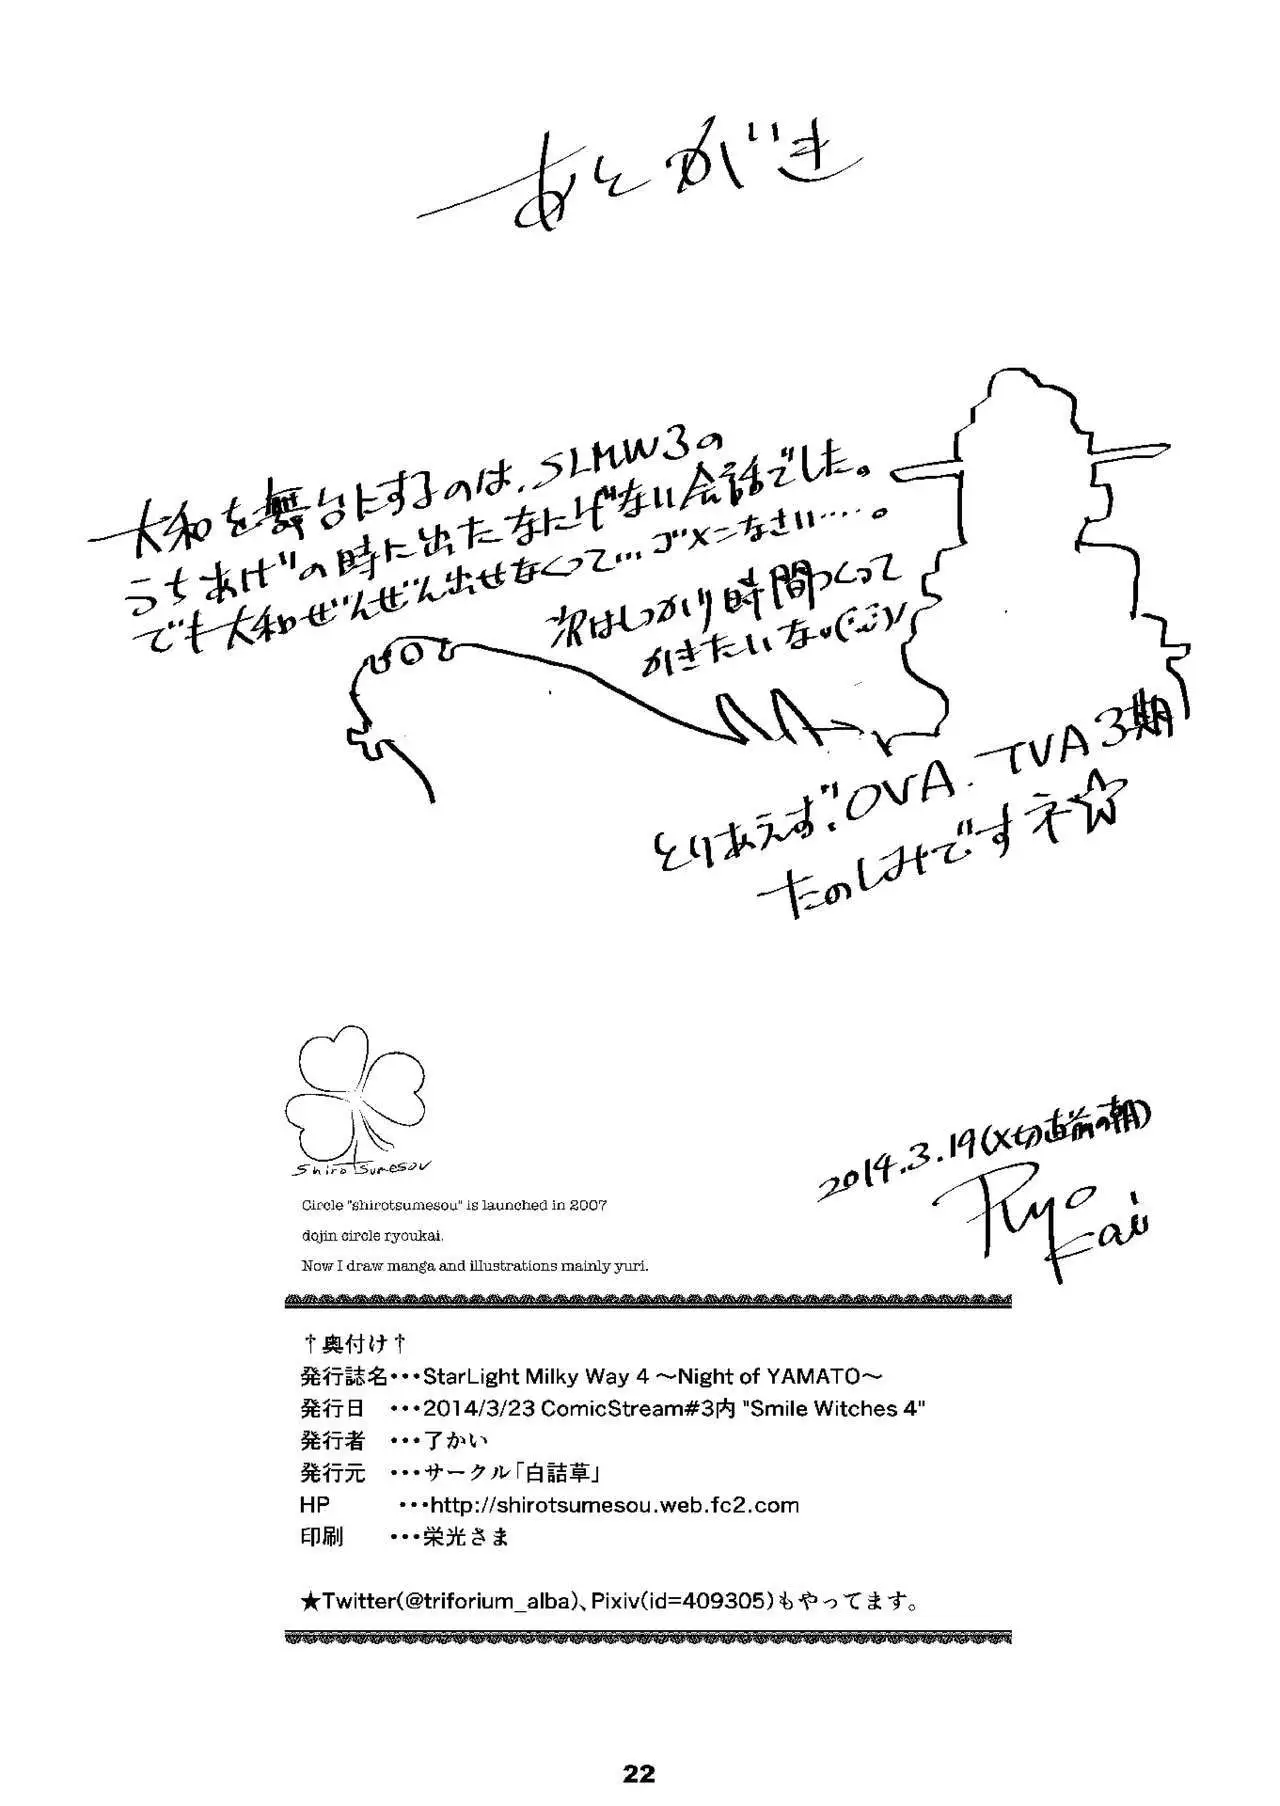 あとがき
大和を舞台にするのは、SLMW3の
うちあげの時に出たなにげない会話でした。
でも大和ぜんぜん出せなくって…ゴメンなさい‥‥。
次はしっかり時間つくって
かきたいな
とりあえず、OVA、TVA3期
たのしみですネ☆
shirotsumesou
Circle "shirotsumesou" is launched in 2007
dojin circle ryoukai.
Now I draw manga and illustrations mainly yuri.
2014.3.19(〆切直前の朝)
Ryo
Kai
†奥付け†
発行誌名・・・StarLight Milky Way 4 ～Night of YAMATO～
発行日 ・・・2014/3/23 ComicStream#3内 "Smile Witches 4"
発行者 ・・・了かい
発行元 ・・・サークル「白詰草」
HP ・・・http://shirotsumesou.web.fc2.com
印刷 ・・・栄光さま
★Twitter(@triforium_alba)、Pixiv(id=409305)もやってます。
22